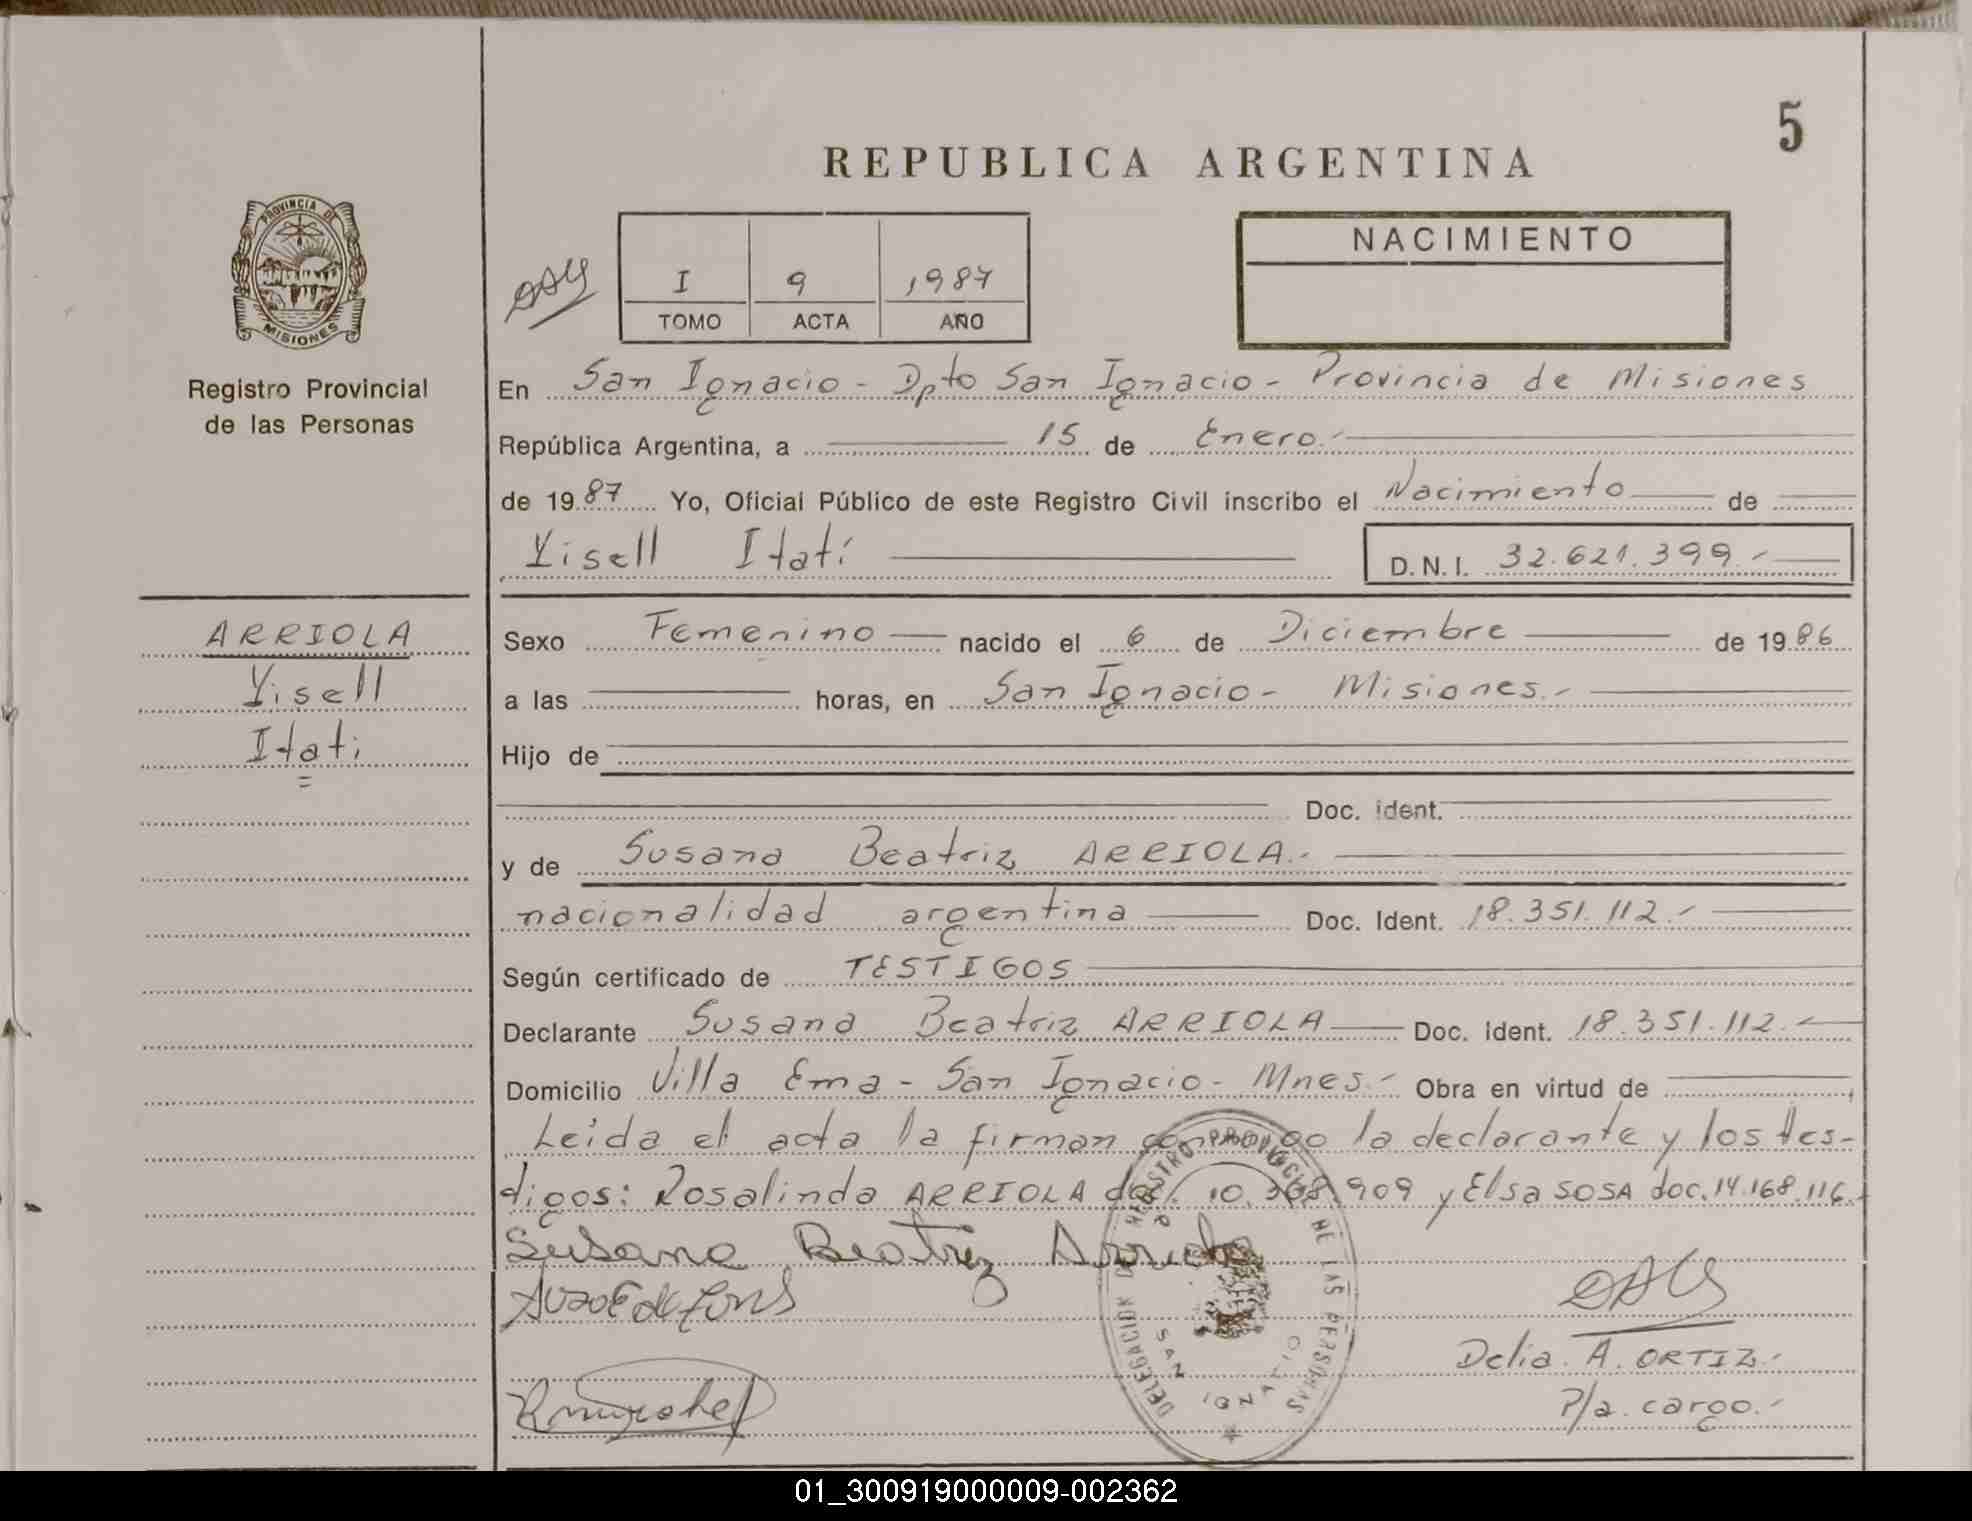 5
REPUBLICA ARGENTINA
PROVINCIA DE
MISIONES
Registro Provincial
de las Personas
I 9 1987
TOMO ACTA AÑO
NACIMIENTO
En San Ignacio - Dpto San Ignacio - Provincia de Misiones
República Argentina, a 15 de Enero.-
de 1987 Yo, Oficial Público de este Registro Civil inscribo el Nacimiento de
Yisell Itatí
D.N.I. 32.621.399.-
ARRIOLA
Yisell
Itati
Sexo Femenino nacido el 6 de Diciembre de 1986
a las horas, en San Ignacio - Misiones.-
Hijo de
Doc. ident.
y de Susana Beatriz ARRIOLA.-
nacionalidad argentina Doc. Ident. 18.351.112.-
Según certificado de TESTIGOS
Declarante Susana Beatriz ARRIOLA Doc. Ident. 18.351.112.-
Domicilio Villa Ema - San Ignacio - Mnes.- Obra en virtud de
Leída el acta la firman conmigo la declarante y los tes-
tigos: Rosalinda ARRIOLA doc. 10.368.909 y Elsa SOSA doc. 14.168.116.-
Susana Beatriz Arriola
DELEGACION DE REGISTRO PROVINCIAL DE LAS PERSONAS
SAN IGNACIO
Delia A. ORTIZ.-
P/a. cargo.-
01_300919000009-002362